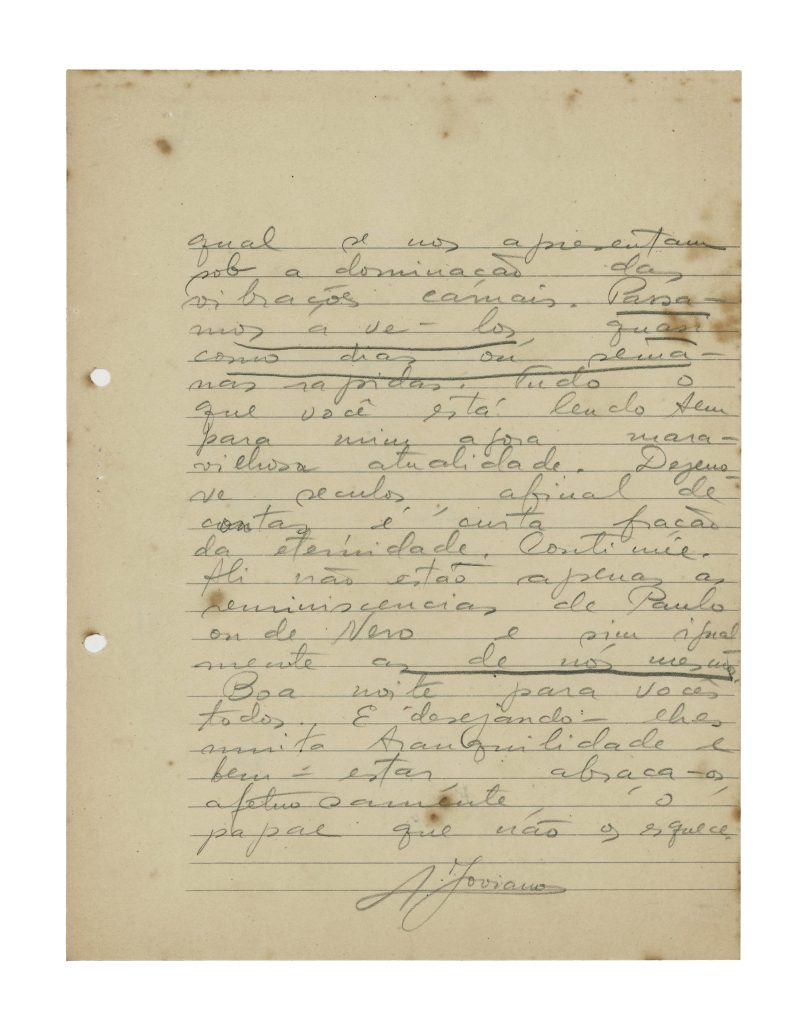 qual se nos apresentam
sob a dominação das
vibrações carnais. Passa-
mos a ve-los quasi
como dias ou sema-
nas rapidas. Tudo o
que você está lendo tem
para mim agora mara-
vilhosa atualidade. Dezeno-
ve seculos, afinal de
contas é curta fração
da eternidade. Continúe.
Ali não estão apenas as
reminiscencias de Paulo
ou de Nero e sim igual
mente as de nós mesmos.
Boa noite para vocês
todos. E desejando-lhes
muita tranquilidade e
bem-estar abraça-os
afetuosamente o
papae que não os esquece.
A. Joviano